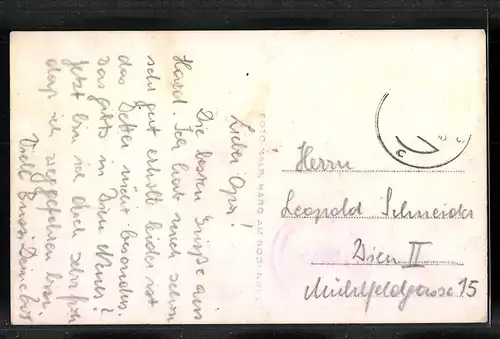 Lieber Opa!
Die besten Grüße aus
Hard. Ich hab mich schon
sehr gut erholt leider ist
das Wetter nicht besonders.
Was gibts in Wien Neues?
Jetzt bin ich doch sehr froh
daß ich weggefahren bin.
Viele Bussi
FOTO HARD AM BODENSEE
Herrn
Leopold Schneider
Wien II
Mühlfeldgasse 15